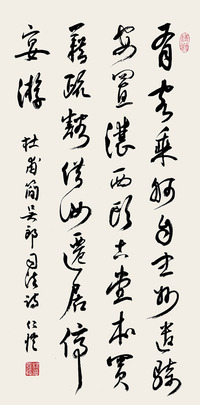 有客乘舸自忠州遣騎
安置瀼西頭古堂本買
藉疏豁借汝遷居停
宴游
杜甫簡吳郎司法詩 仁愷